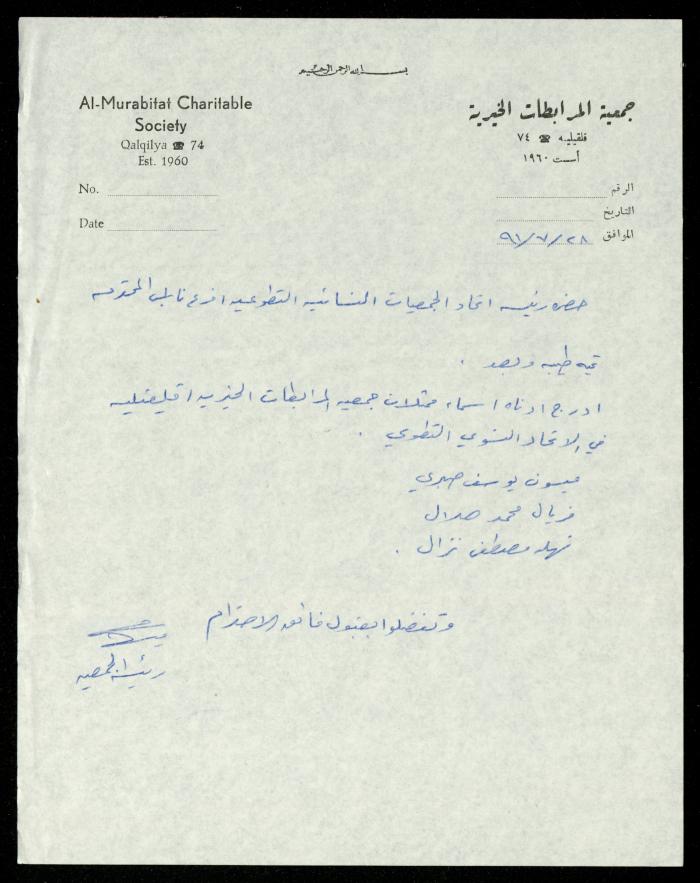 بسم الله الرحمن الرحيم
Al-Murabitat Charitable
Society
Qalqilya ☎ 74
Est. 1960
No.
Date
جمعية المرابطات الخيرية
قلقيليه ☎ ٧٤
أسست ١٩٦٠
الرقم
التاريخ
الموافق ٢٨/٧/٩١
حضرة رئيسه اتحاد الجمعيات النسائيه التطوعيه / فرع نابلس المحترمه
تحيه طيبه وبعد .
ادرج ادناه اسماء ممثلات جمعيه المرابطات الخيريه / قلقيليه
في الاتحاد النسوي التطوعي .
ميسون يوسف صبري
فريال محمد هلال
نهله مصطفى نزال .
وتفضلوا بقبول فائق الاحترام
رئيسة الجمعيه